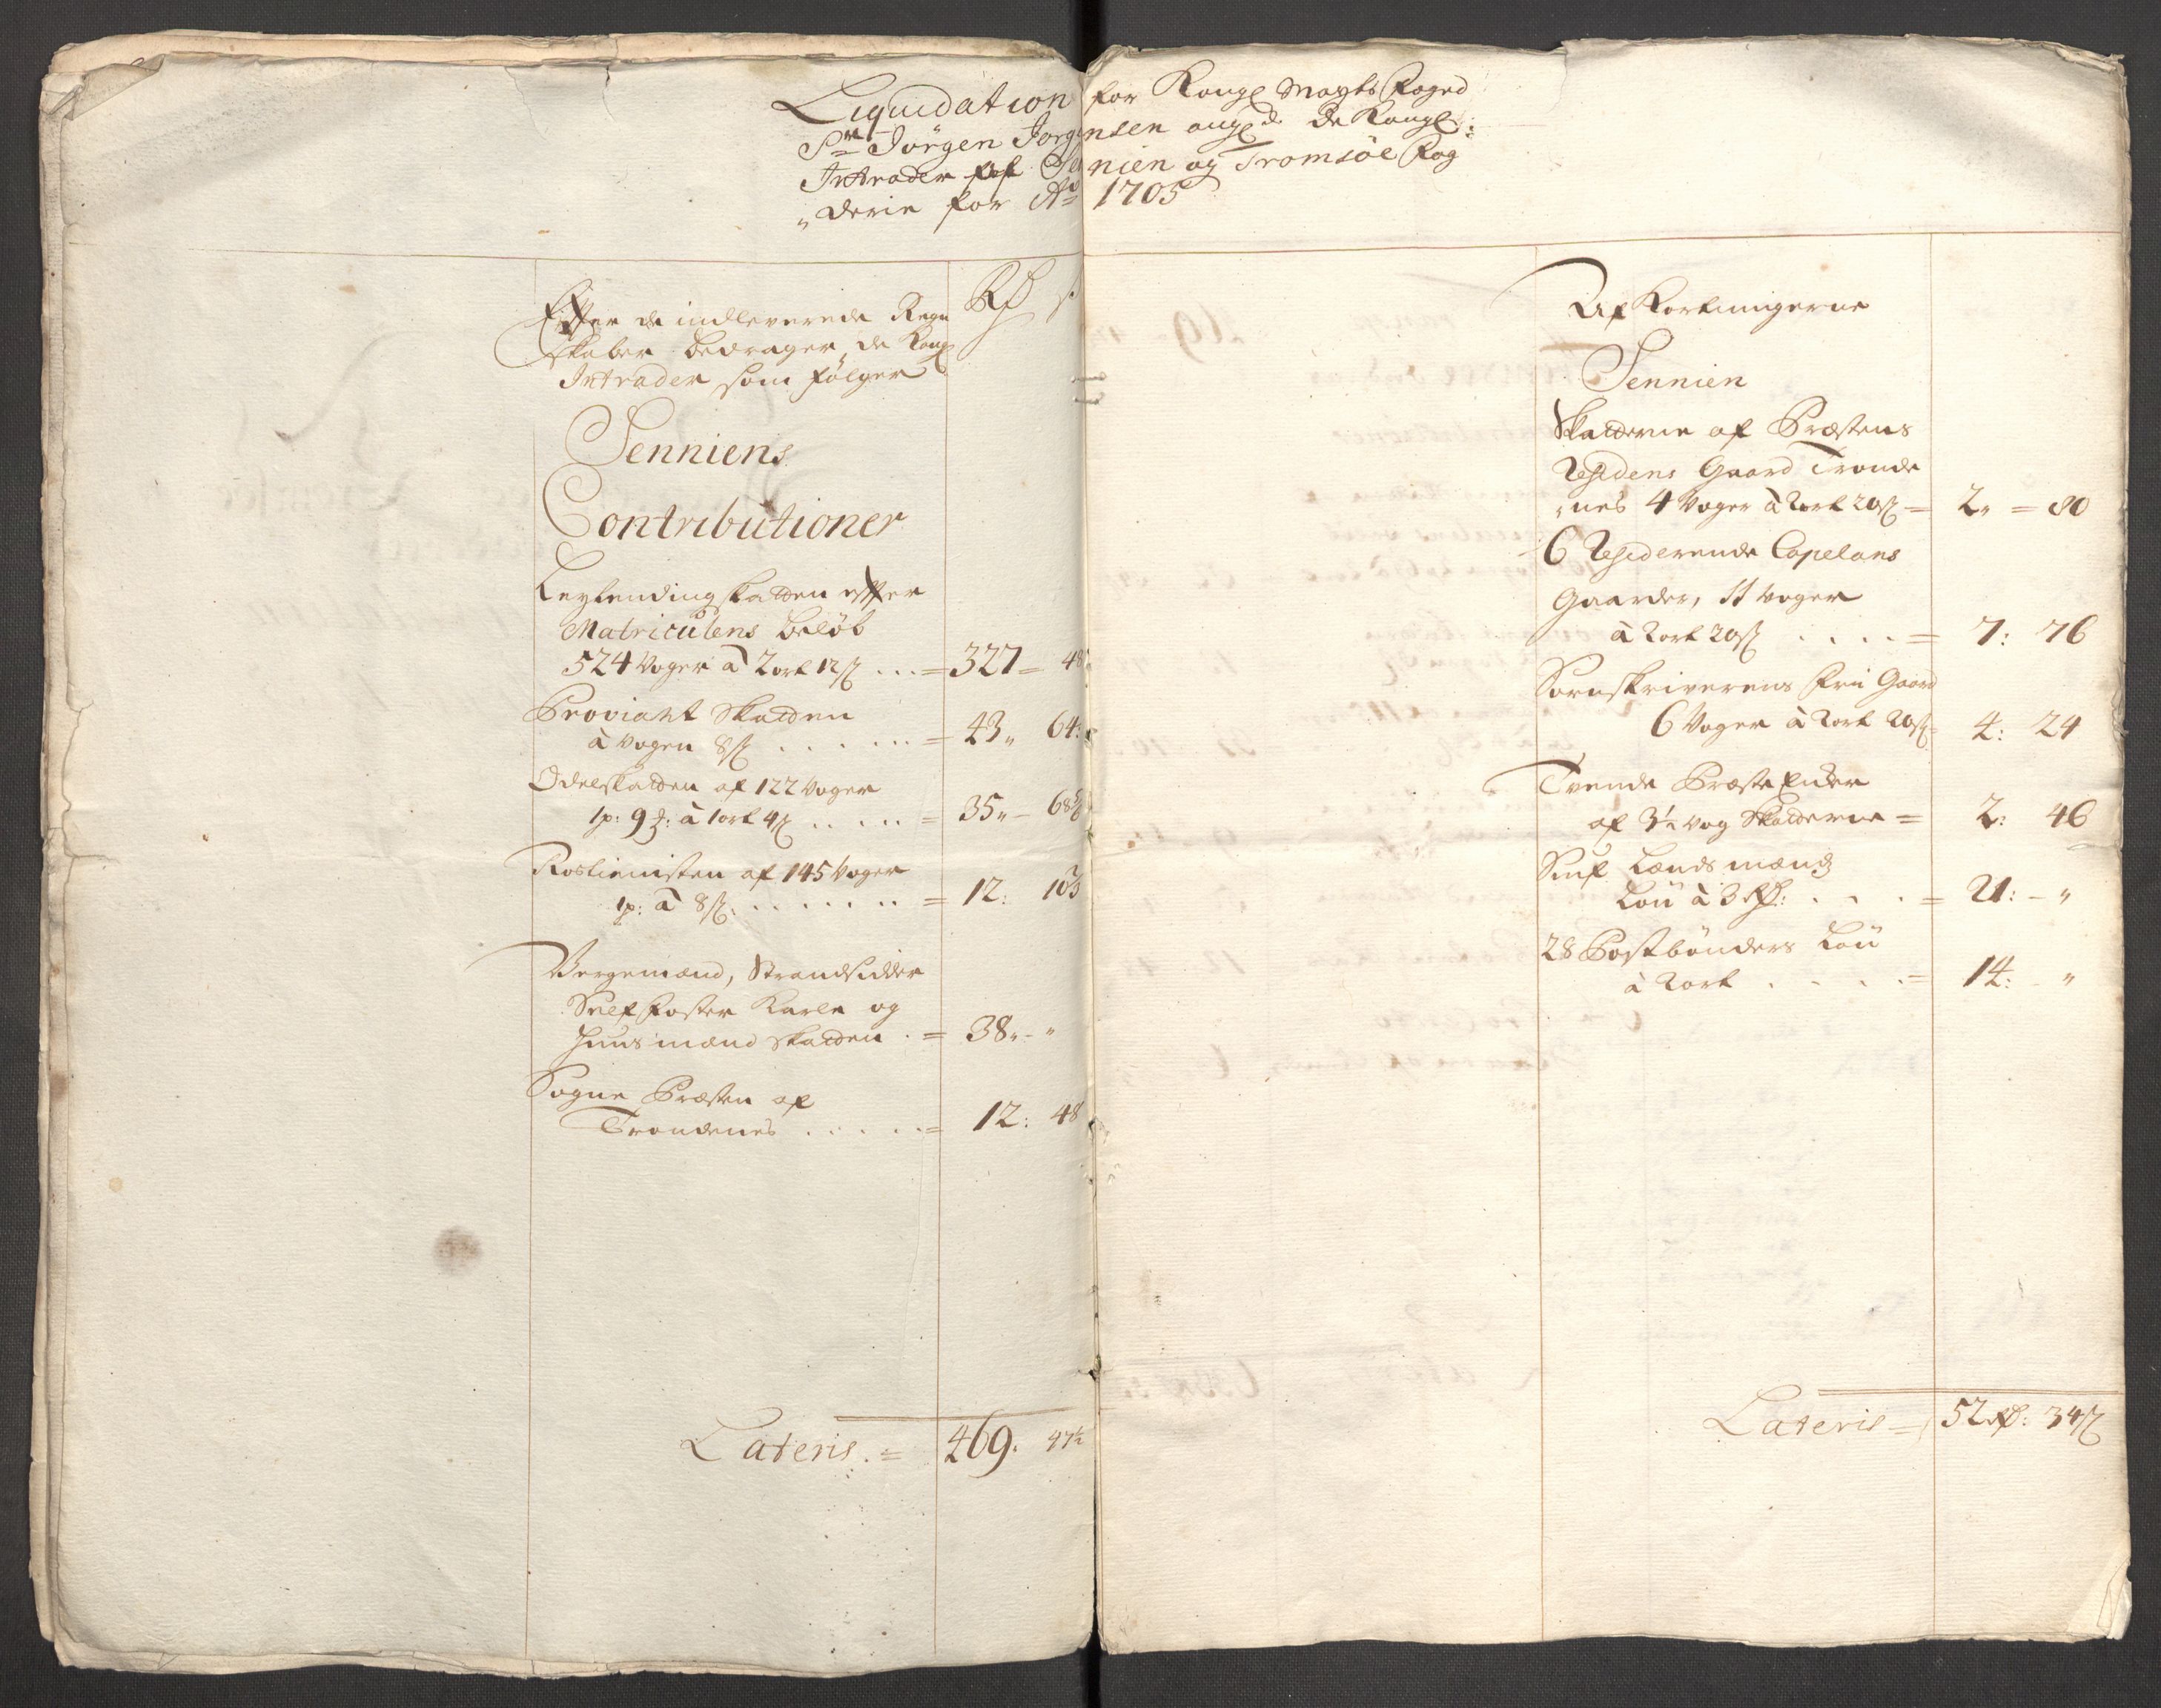 Liquidation for Kongl Mayts Foged
Sr Jörgen Jorgensen angl. de Kongl:
Intrader af Sennien og Tromsöe Fog
„derie for Ao 1705
Rd s
Efter de indleverede Regn
skaber bedrager de Kongl
Intrader som fölger
Senniens
Contributioner
Leylending skatten efter
Matriculens beløb
524 Voger à 2 ort 12 s ... = 327 = 48
Proviant Skatten
à Vogen 8 s ...... = 43„ 64:
Odelskatten af 122 Voger
1p: 9 : à 1 ort 4 s ..... = 35„ – 68
Rostienisten af 145 Voger
1p: à 8 s ....... = 12: 10
Borgemænd, Strandsidder
Sielf foster Karle og
Huusmænd Skatten . = 38„ - "
Sogne Præsten af
Trondenes ..... = 12: 48
Lateris. = 469. 47½
Afkortningerne
Sennien
Skatterne af Præstens
Residens Gaard Tronde
„nes 4 Voger à 2 ort 20 s = 2„ = 80
6 Residerende Capelans
Gaarder, 11 Voger
à 2 ort 20 s .... = 7: 76
Sorenskriverens frii Gaard
6 Voger à 2 ort 20 s = 4: 24
Tvende Præste Encker
af 3½ Vog Skatterne = 2: 46
Siuf Lænds mænds
Løn à 3 Rd: ... = 21: - "
28 Postbönders Løn
à 2 ort .... = 14: - "
Lateris = 52 Rd: 34 s